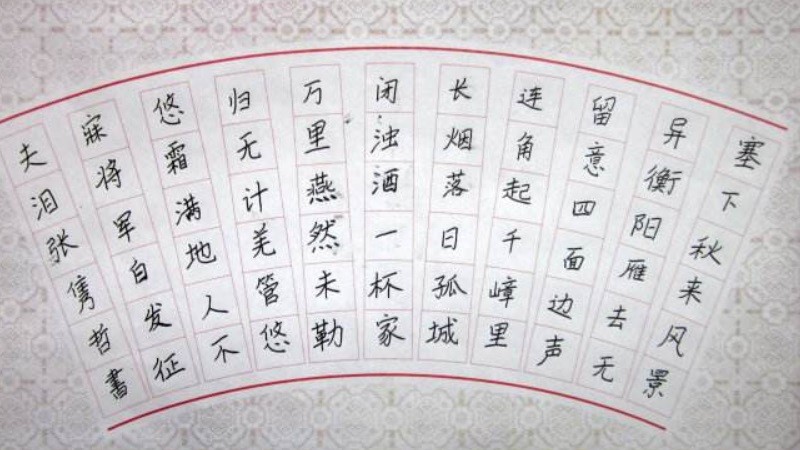 塞下秋来风景
异衡阳雁去无
留意四面边声
连角起千嶂里
长烟落日孤城
闭浊酒一杯家
万里燕然未勒
归无计羌管悠
悠霜满地人不
寐将军白发征
夫泪张隽哲書